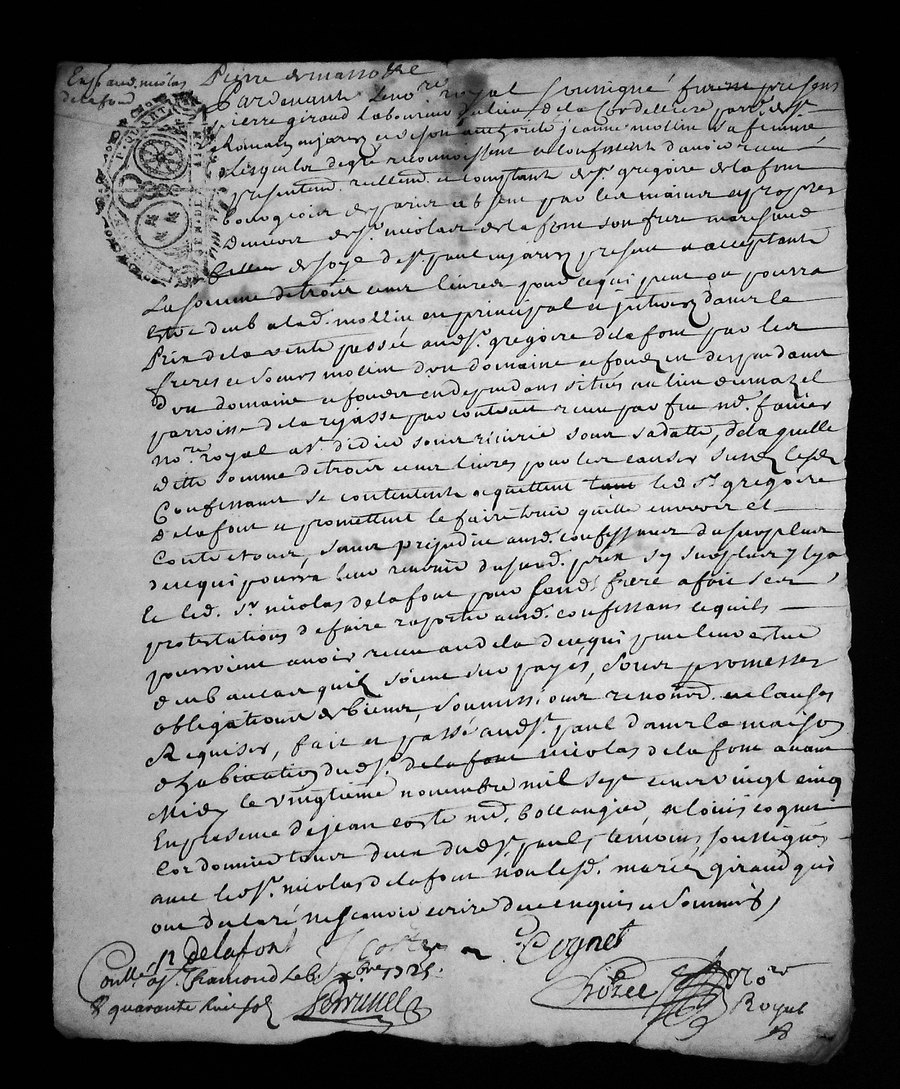 Exp. aud. nicolas
delafond
Pierre
Pardevant le no.re royal soussigné furent presens
pierre giraud laboureur du lieu de la Cordelliere parr.e de s.t
Romain en jarez et de son authorité jeanne molin sa femme
lesquels de gré reconnoissent et confessent d'avoir receu
presentem. reellem. et comptant de s.r gregoire delafont
bourgeois de paris absent par les mains et propres
deniers de s.r nicolas de la font son frere marchand
de soye de s.t paul en jarez present et acceptant
La somme de trois cent livres pour ce qui peut ou pourra
estre deub a lad. mollin en principal et interez dans le
Prix de la vente passée aud. s.r gregoire delafont par les
freres et soeurs molin d'un domaine et fondz en dependans
d'un domaine et fondz en dependans situés au lieu du mazel
parroisse de la rejasse par contrat receu par feu m.e
no.re royal a s.t didier sous sa datte, de laquelle
ditte somme de trois cent livres pour les causes susd. lesd.
Confessant se contentent et quittent led. s.r gregoire
delafont et promettent le faire tenir quitte envers et
Contre tous, sans prejudice aud. confessans du surplus
de ce qui pourra leur revenir dususd. prix sy surplus y a
et led. s.r nicolas delafont pour sond. frere a fait ses
protestations de faire raporter aud. confessans ce quils
pourroient avoir receu au dela de ce qui peut leur estre
deub au cas quilz soient surpayés, sous promesses
obligations de biens, soumissions renond. et clauses
Requises, fait et passé aud. s.t paul dans la maison
d'habitation dud. s.r nicolas de la font avant
Midy le vingtieme novembre mil sept cent vingt cinq
En presence de jean coste m.d boulangier et louis cognet
Cordonnier tous deux dud. s.t paul, temoins soussignés
avec led. s.r nicolas delafont non lesd. mariez giraud qui
ont declaré ne scavoir ecrire de ce enquis et sommés,
n delafont
Coste
Cognet
Contr.lé a s.t Chamond le 1725.
R quarante huit sol
No.re
Royal